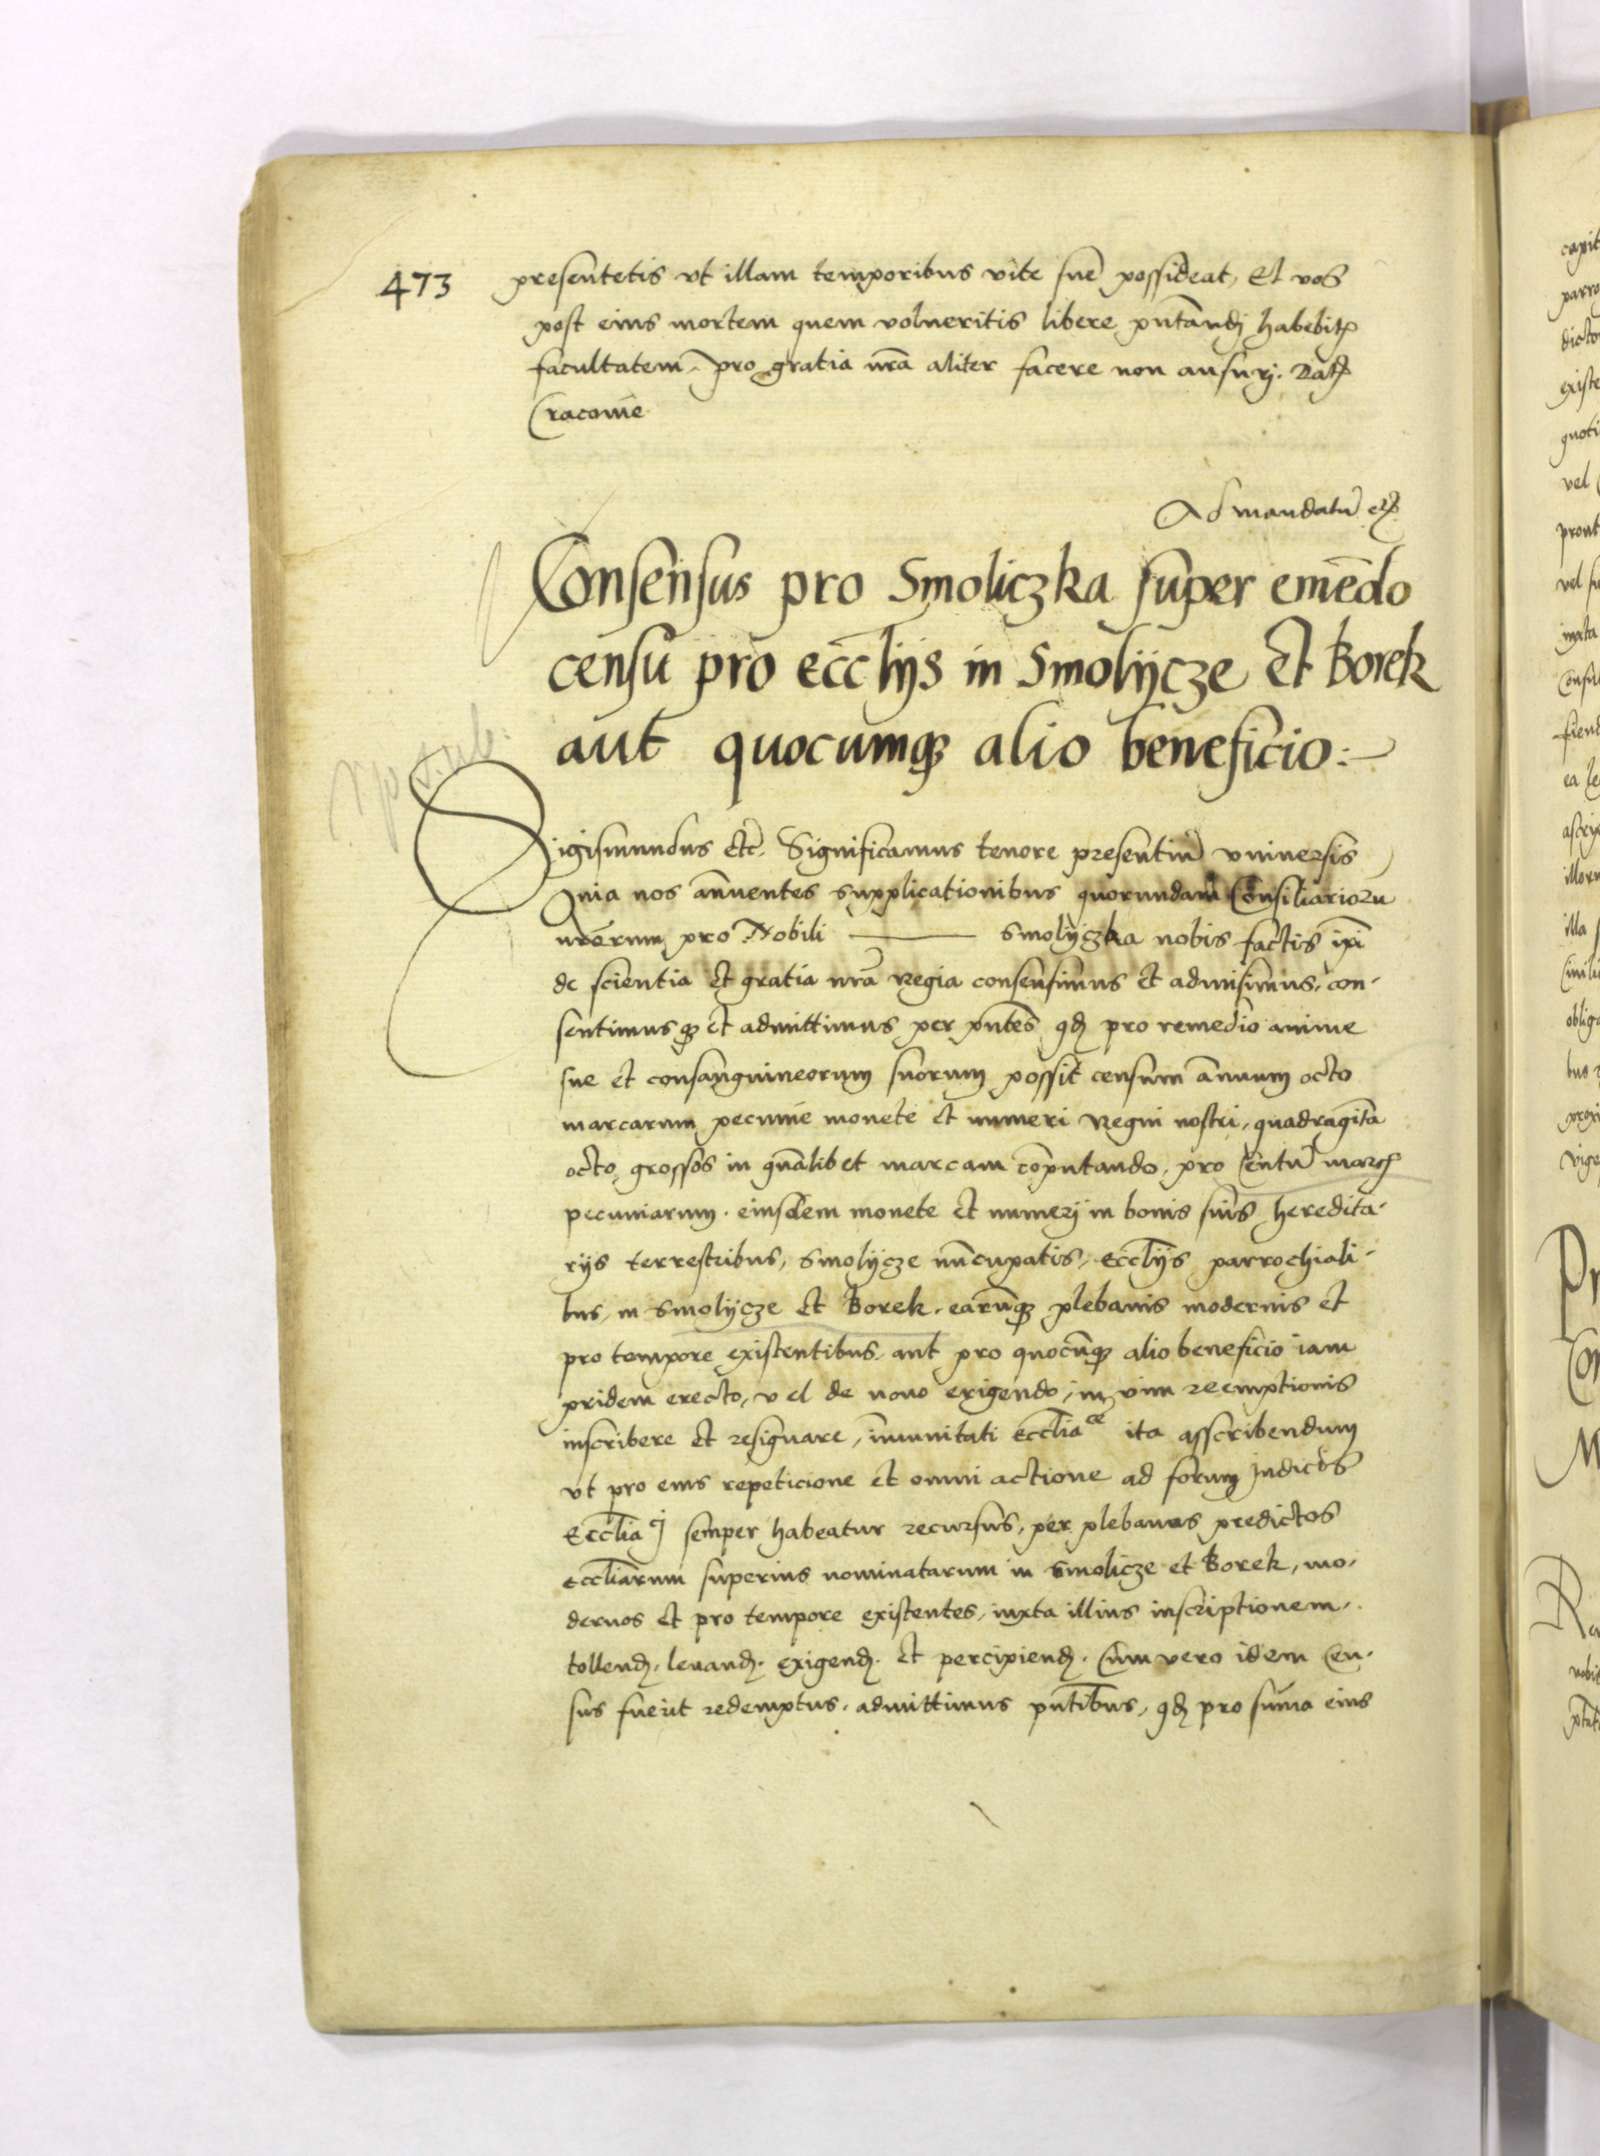 473 presentetis vt illam temporibus vite sue possideat, Et vos
post eius mortem quem volueritis libere pn̄tandj habebitꝭ
facultatem, pro gratia nr̄a aliter facere non ausurj. Datꝭ
Cracouie
Ad mandatū etꝭ
Consensus pro Smoliczka super emēdo
censu pro eccl̄ijs in Smolijcze Et Borek
aut quocumqꝫ alio beneficio:—
Sigismundus etc̄. Significamus tenore presentiū vniuersis
Quia nos an̄uentes supplicationibus quorundam Consiliarioru
nrōrum pro Nobili ——— Smolÿczka nobis factis ip̄i
de scientia et gratia nr̄a Regia consensimus et admisimus, con-
sentimusqꝫ et admittimus per pn̄tes qđ pro remedio anime
sue et consanguineorum suorum possit censum an̄uum octo
marcarum pecunie monete et numeri Regni nostri, quadraginta
octo grossos in qn̄alibet marcam cōputando, pro Centū marcꝭ
pecuniarum eiusdem monete et numerj in bonis suis heredita-
rijs terrestribus, Smolijcze nūcupatis, Eccl̄ijs parrochiali-
bus, in Smolijcze et Borek, earūqꝫ plebanis modernis et
pro tempore existentibus, aut pro quocūqꝫ alio beneficio iam
pridem erecto, vel de nouo erigendo, in vim reemptionis
inscribere et resignare, īmunitati Eccl̄iaᶜᵉ ita asscribendum
vt pro eius repeticione et omni actione ad forum Judicis
Eccl̄iacj semper habeatur recursus, per plebanos predictos
eccl̄iarum superius nominatarum in Smolicze et Borek, mo-
dernos et pro tempore existentes, iuxta illius inscriptionem
tollenđ, leuanđ, exigenđ et percipienđ. Cum vero idem Cen-
sus fuerit redemptus, admittimus pn̄tibus, qđ pro sum̄a eius